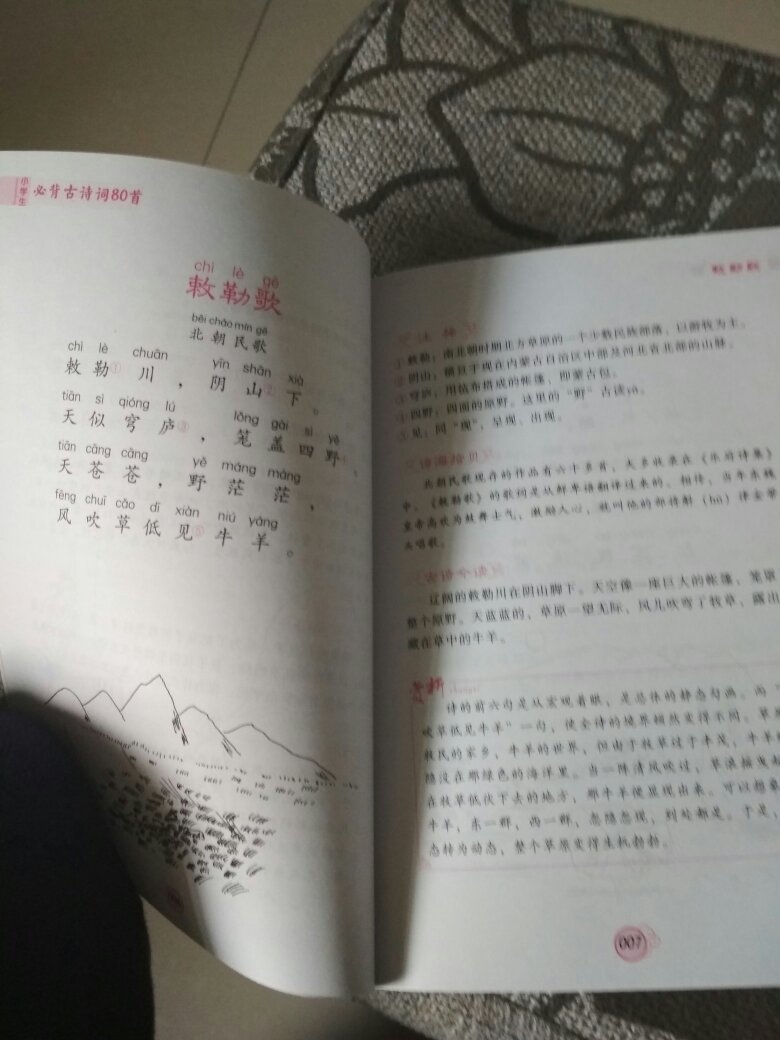 小学生
必背古诗词80首
chì lè gē
敕勒歌
běi cháo mín gē
北朝民歌
chì lè chuān yīn shān xià
敕勒①川，阴山②下。
tiān sì qióng lú lǒng gài sì yě
天似穹庐③，笼盖四野④。
tiān cāng cāng yě máng máng
天苍苍，野茫茫，
fēng chuī cǎo dī xiàn niú yáng
风吹草低见⑤牛羊。
敕勒歌
注释
①敕勒：南北朝时期北方草原的一个少数民族部落，以游牧为主。
②阴山：横亘于现在内蒙古自治区中部及河北省北部的山脉。
③穹庐：用毡布搭成的帐篷，即蒙古包。
④四野：四面的原野。这里的“野”古读yǎ。
⑤见：同“现”，呈现、出现。
诗海拾贝
北朝民歌现存的作品有六十多首，大多收录在《乐府诗集》
中，《敕勒歌》的歌词是从鲜卑语翻译过来的。相传，当年东魏
皇帝高欢为鼓舞士气，激励人心，就叫他的部将斛（hú）律金带
头唱歌。
古诗今读
辽阔的敕勒川在阴山脚下。天空像一座巨大的帐篷，笼罩
整个原野。天蓝蓝的，草原一望无际，风儿吹弯了牧草，露出
藏在草中的牛羊。
赏析 shǎngxī
诗的前六句是从宏观着眼，是总体的静态勾画。而
吹草低见牛羊”一句，使全诗的境界顿然变得不同。草
牧民的家乡，牛羊的世界，但由于牧草过于丰茂，牛羊
隐没在那绿色的海洋里。当一阵清风吹过，草浪摇曳
在牧草低伏下去的地方，那牛羊便显现出来。可以想
牛羊，东一群，西一群，忽隐忽现，到处都是。于是，
态转为动态，整个草原变得生机勃勃。
007